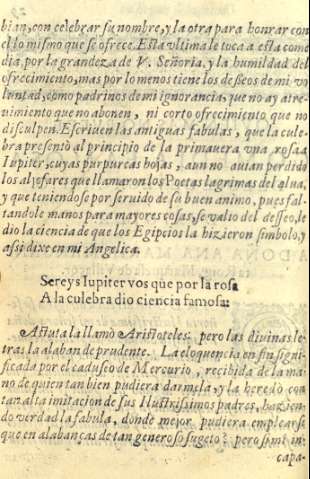 bian, con celebrar su nombre, y la otra para honrar con
ello mismo que se ofrece. Esta vltima le toca a esta come
dia, por la grandeza de V. Señoria, y la humildad del
ofrecimiento, mas por lo menos tiene los desseos de mi vo
luntad, como padrinos de mi ignorancia, que no ay atre-
uimiento que no abonen, ni corto ofrecimiento que no
disculpen. Escriuen las antiguas fabulas, que la cule-
bra presentò al principio de la primauera vna rosa a
Iupiter, cuyas purpureas hojas, aun no auian perdido
los aljofares que llamaron los Poetas lagrimas del alua,
y que teniendose por seruido de su buen animo, pues fal-
tandole manos para mayores cosas, se valio del desseo, le
dio la ciencia de que los Egipcios la hizieron simbolo, y
assi dixe en mi Angelica.
Sereys Iupiter vos que por la rosa
A la culebra dio ciencia famosa:
Astuta la llamò Aristoteles: pero las diuinas le-
tras la alaban de prudente. La eloquencia en fin signi-
ficada por el caduseo de Mercurio, recibida de la ma
no de quien tan bien pudiera darmela, y la heredò con
tan alta imitacion de sus Ilustrissimos padres, hazien-
do verdad la fabula, donde mejor pudiera emplearse
que en alabanças de tan generoso sugeto? pero si mi in-
capa-